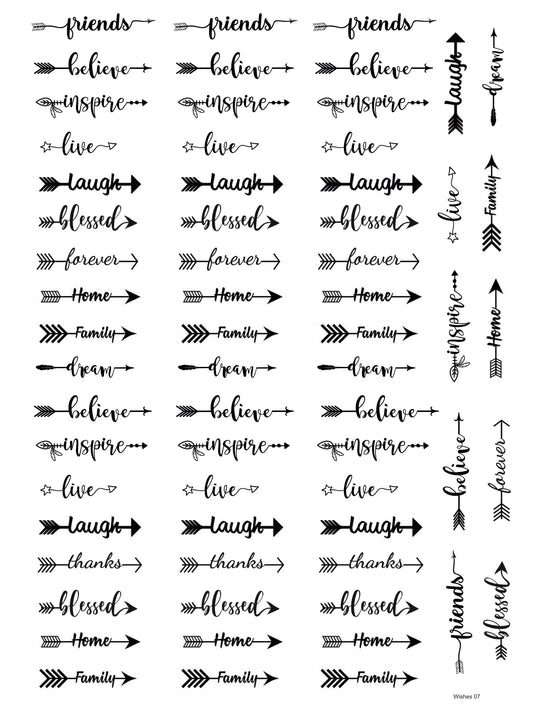 friends friends friends
believe believe believe
inspire inspire inspire
live live live
laugh laugh laugh
blessed blessed blessed
forever forever forever
Home Home Home
Family Family Family
dream dream dream
believe believe believe
inspire inspire inspire
live live live
laugh laugh laugh
thanks thanks thanks
blessed blessed blessed
Home Home Home
Family Family Family
laugh
dream
live
Family
inspire
Home
believe
forever
friends
blessed
Wishes 07